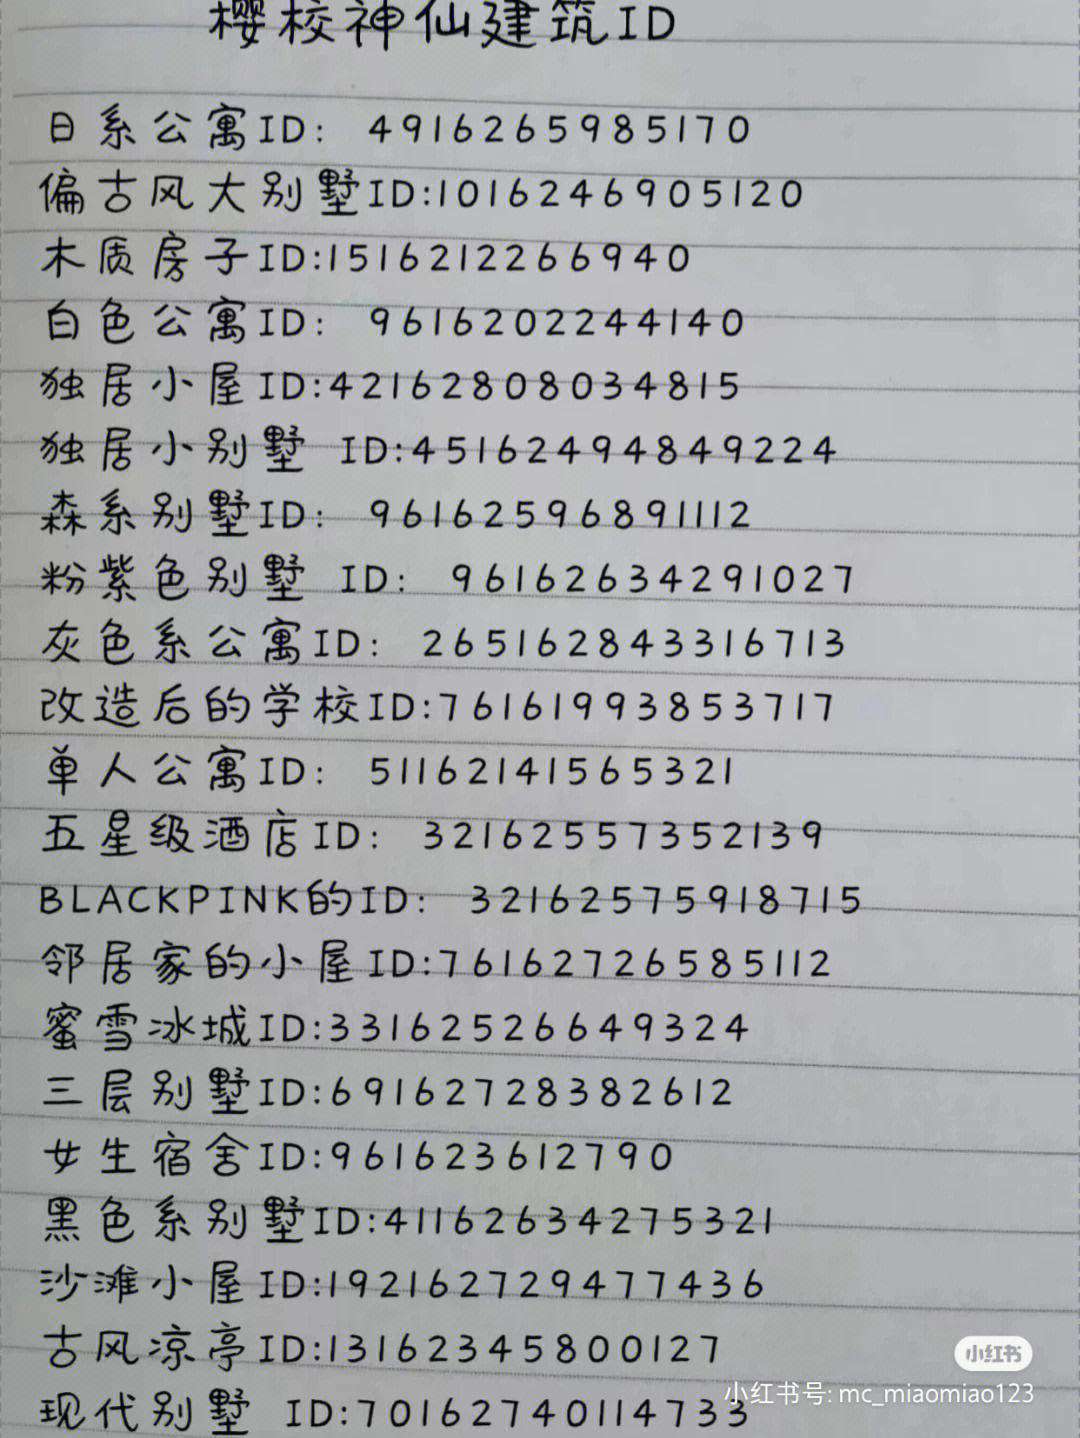 樱校神仙建筑ID
日系公寓ID: 4916265985170
偏古风大别墅ID:1016246905120
木质房子ID:1516212266940
白色公寓ID: 9616202244140
独居小屋ID:42162808034815
独居小别墅 ID:45162494849224
森系别墅ID: 96162596891112
粉紫色别墅 ID: 96162634291027
灰色系公寓ID: 265162843316713
改造后的学校ID:76161993853717
单人公寓ID: 51162141565321
五星级酒店ID: 32162557352139
BLACKPINK的ID: 32162575918715
邻居家的小屋ID:76162726585112
蜜雪冰城ID:33162526649324
三层别墅ID:69162728382612
女生宿舍ID:961623612790
黑色系别墅ID:41162634275321
沙滩小屋ID:192162729477436
古风凉亭ID:13162345800127
现代别墅 ID:70162740114733
小红书
小红书号: mc_miaomiao123